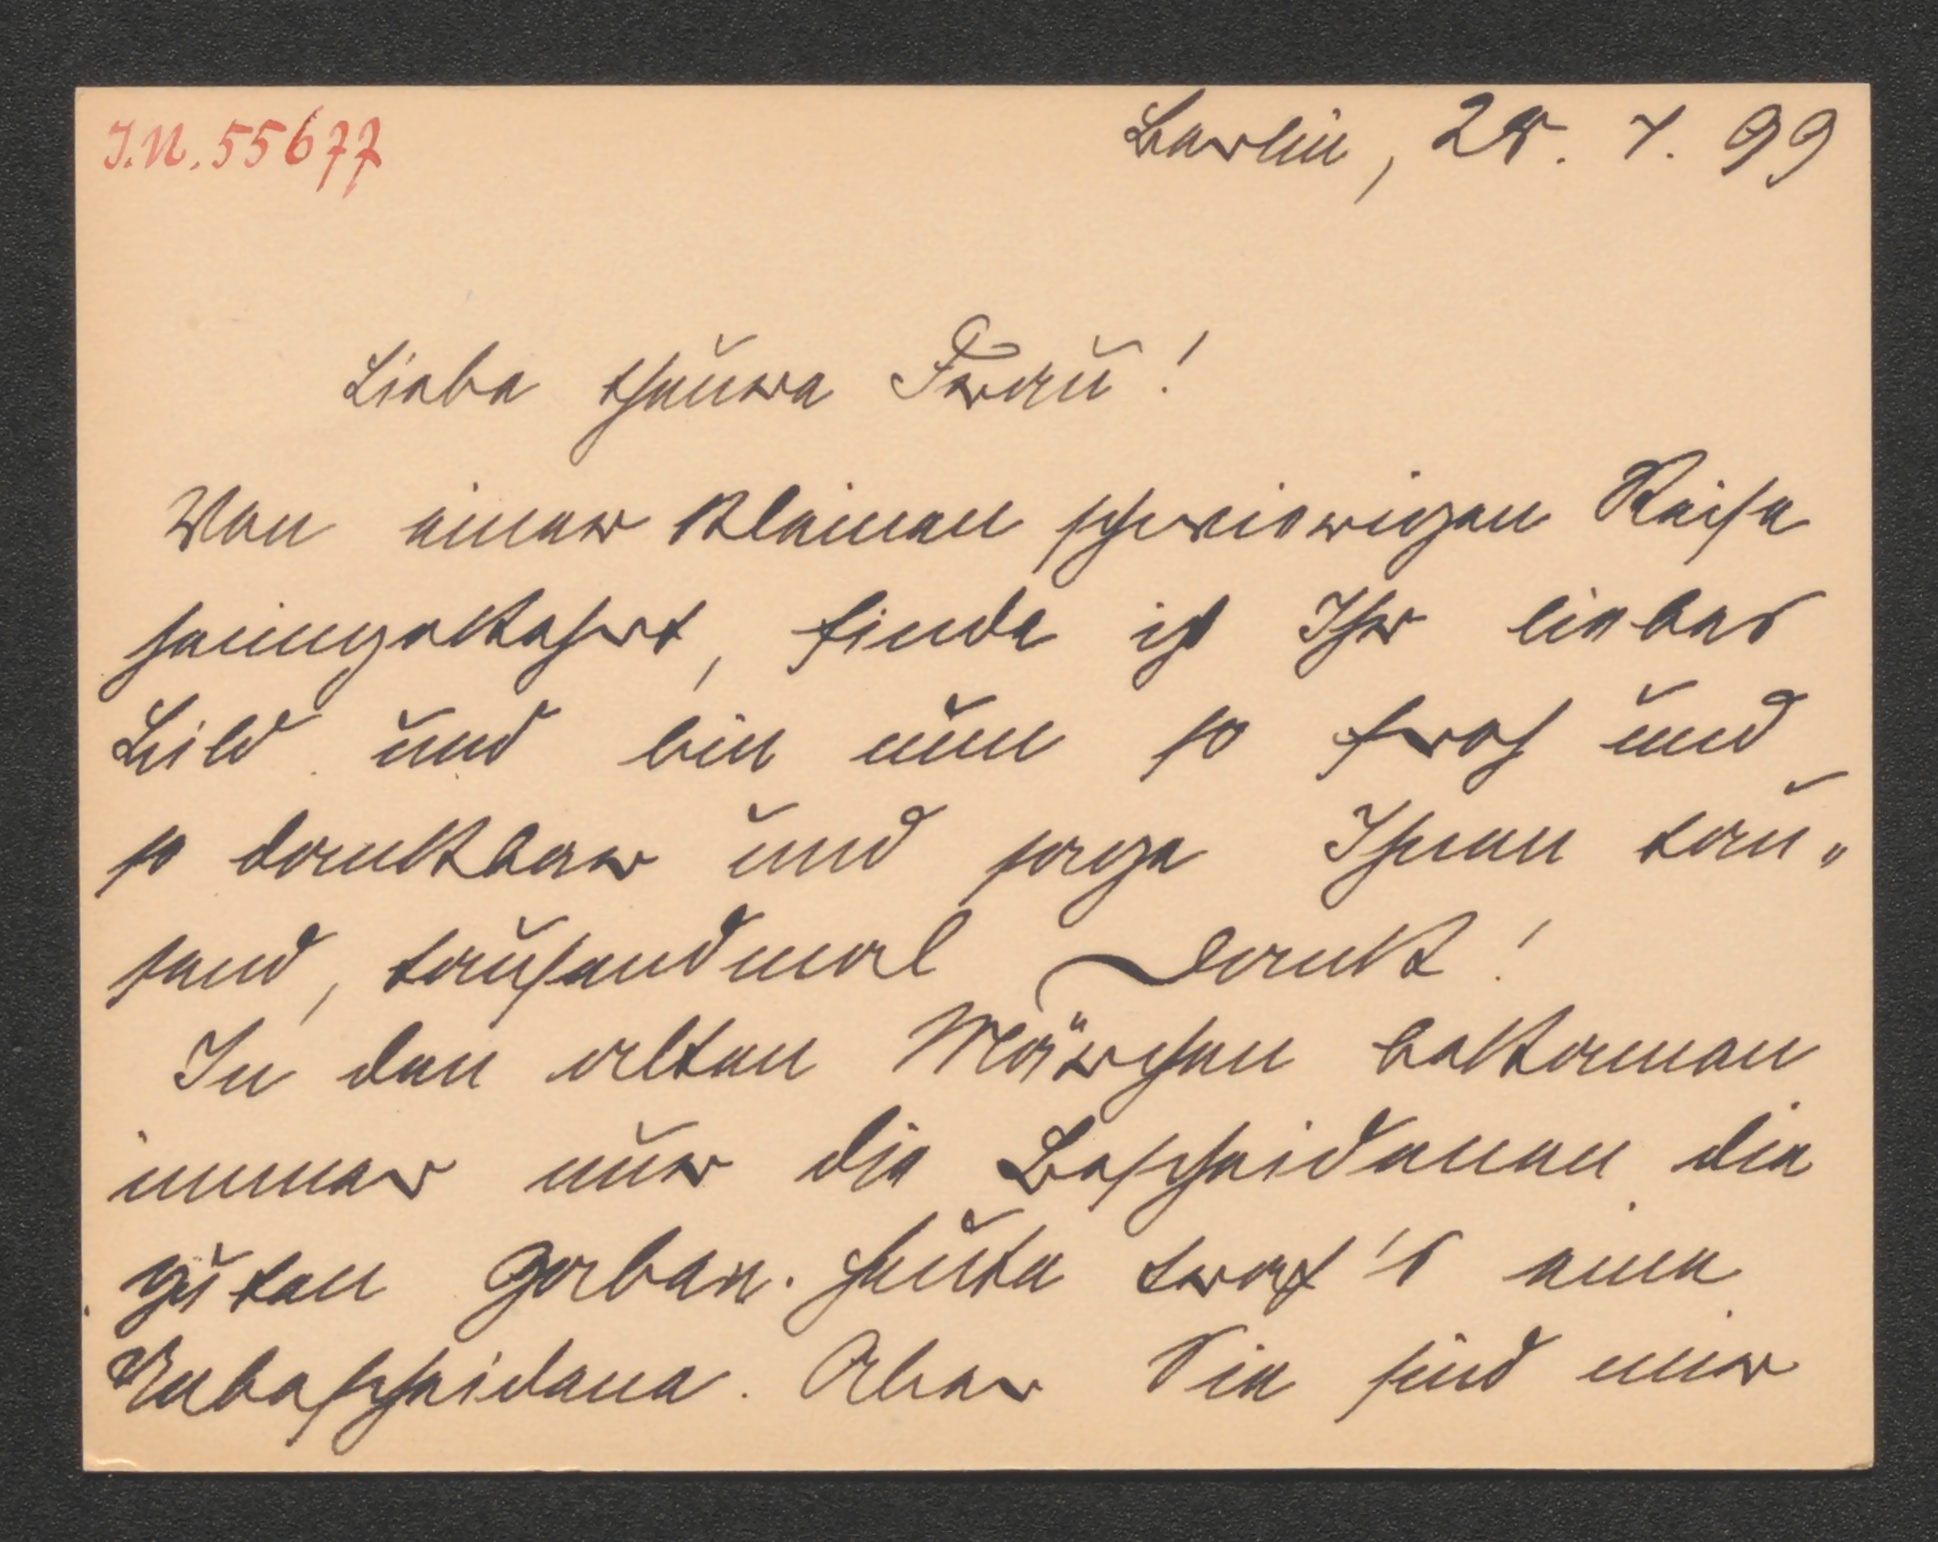 J.N. 55677
Berlin, 28. 4. 99
Liebe theure Frau!
Von einer kleinen schwierigen Reise
heimgekehrt, finde ich Ihr liebes
Bild und bin nun so froh und
so dankbar und sage Ihnen tau„
send, tausendmal Dank!
In den alten Märchen bekamen
immer nur die Bescheidenen die
guten Gaben. Heute traf's eine
Unbescheidene. Aber Sie sind mir